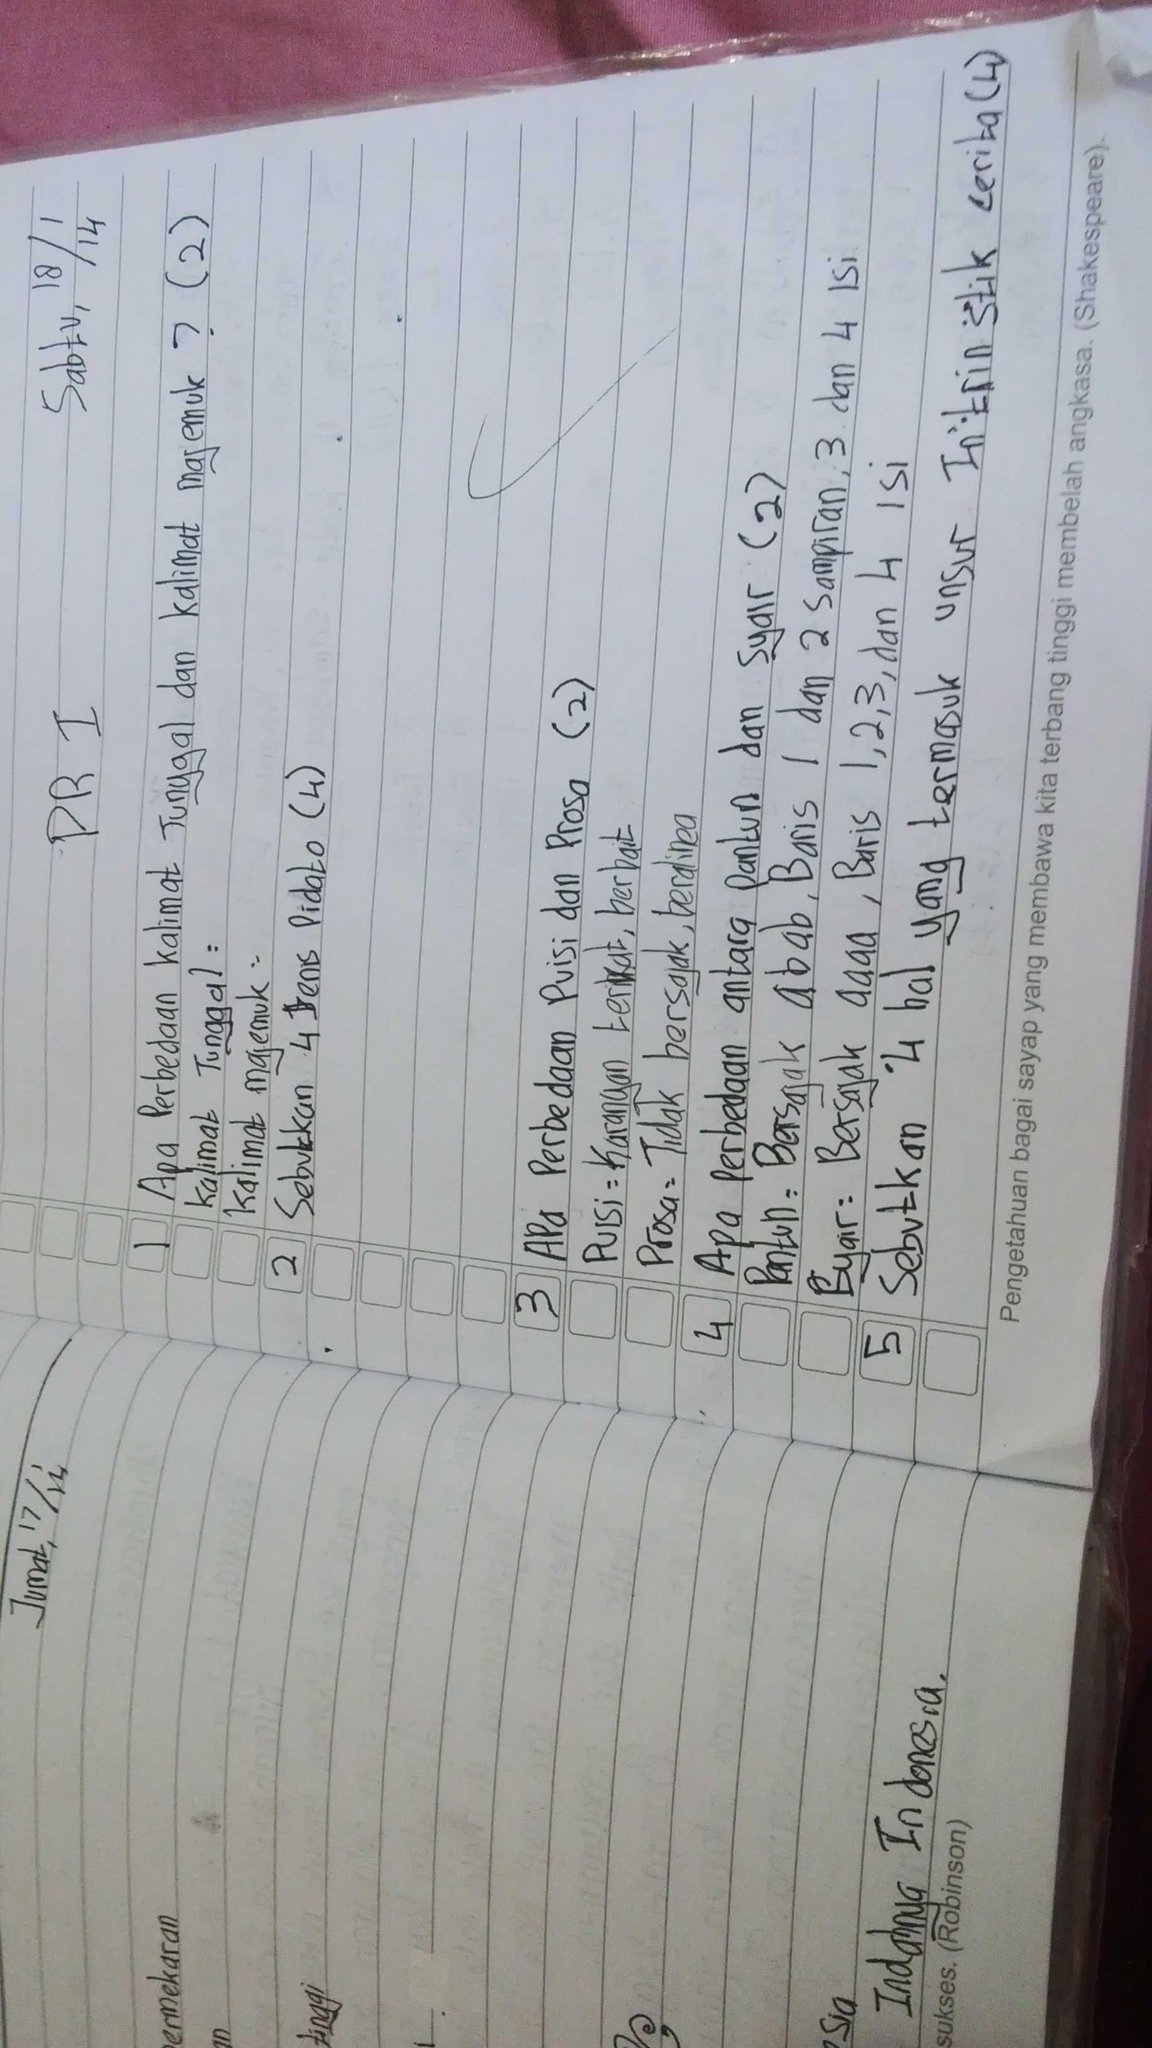 Jumat, 17/14
permekaran
tinggi
Indahnya Indonesia.
sukses. (Robinson)
PR I
Sabtu, 18/1/14
1 Apa Perbedaan kalimat Tunggal dan kalimat majemuk ? (2)
kalimat Tunggal =
kalimat majemuk =
2 Sebutkan 4 Jenis Pidato (4)
3 Apa Perbedaan Puisi dan Prosa (2)
Puisi = Karangan terikat, berbait
Prosa = Tidak bersajak, beralinea
4 Apa perbedaan antara Pantun dan Syair (2)
Pantun = Bersajak abab, Baris 1 dan 2 Sampiran, 3 dan 4 Isi
Syair = Bersajak aaaa, Baris 1,2,3, dan 4 Isi
5 Sebutkan 4 hal yang termasuk unsur Intrinstik cerita (4)
Pengetahuan bagai sayap yang membawa kita terbang tinggi membelah angkasa. (Shakespeare).